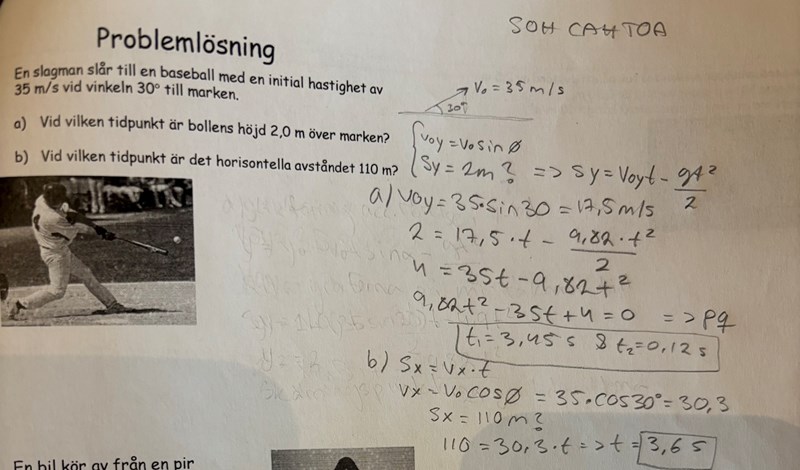 SOH CAHTOA
Problemlösning
En slagman slår till en baseball med en initial hastighet av
35 m/s vid vinkeln 30° till marken.
a) Vid vilken tidpunkt är bollens höjd 2,0 m över marken?
b) Vid vilken tidpunkt är det horisontella avståndet 110 m?
V₀ = 35 m/s
30°
V₀y = V₀ sin Ø
Sy = 2m ? => Sy = V₀yt - gt²/2
a) V₀y = 35·sin30 = 17,5 m/s
2 = 17,5·t - 9,82·t²/2
4 = 35t - 9,82t²
9,82t² - 35t + 4 = 0 => pq
t₁ = 3,45 s & t₂ = 0,12 s
b) Sx = Vx·t
Vx = V₀ cos Ø = 35·cos30° = 30,3
Sx = 110 m ?
110 = 30,3·t => t = 3,6 s
En bil kör av från en pir